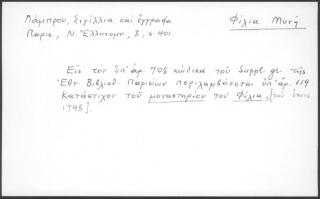 Λάμπρου, Σιγίλλια καὶ ἔγγραφα
Φίλια Μονή
Παρισ., Ν. Ἑλληνομν., 3, σ. 401
Εἰς τὸν ὑπ' ἀρ. 708 κώδικα τοῦ Suppl. gr. τῆς
Ἐθν. Βιβλιοθ. Παρισίων περιλαμβάνεται ὑπ' ἀρ. 119
Κατάστιχον τοῦ μοναστηρίου τοῦ Φίλια, [τοῦ ἔτους
1798].